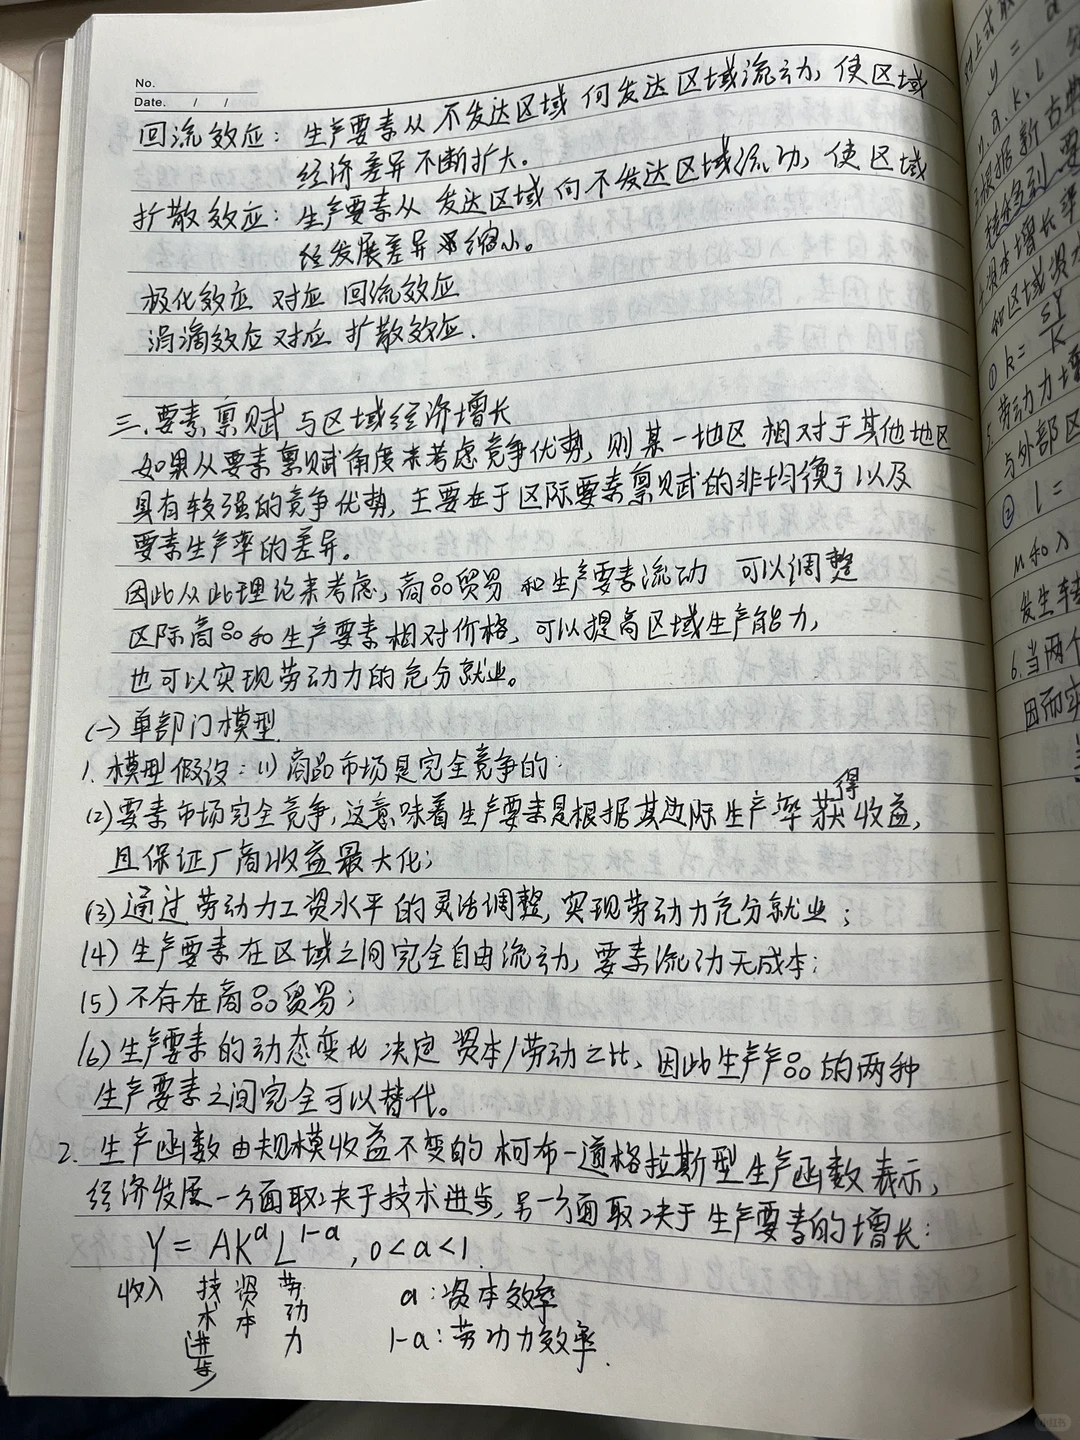 No.
Date. / /
回流效应：生产要素从不发达区域向发达区域流动，使区域
经济差异不断扩大。
扩散效应：生产要素从发达区域向不发达区域流动，使区域
经发展差异缩小。
极化效应 对应 回流效应
涓滴效应对应 扩散效应.
三.要素禀赋与区域经济增长
如果从要素禀赋角度来考虑竞争优势，则某一地区相对于其他地区
具有较强的竞争优势，主要在于区际要素禀赋的非均衡，以及
要素生产率的差异。
因此从此理论来考虑，商品贸易和生产要素流动 可以调整
区际商品和生产要素相对价格，可以提高区域生产能力，
也可以实现劳动力的充分就业。
(一)单部门模型
1.模型假设：(1)商品市场是完全竞争的；
(2)要素市场完全竞争，这意味着生产要素是根据其边际生产率获得收益，
且保证厂商收益最大化；
(3)通过劳动力工资水平的灵活调整，实现劳动力充分就业；
(4)生产要素在区域之间完全自由流动，要素流动无成本；
(5)不存在商品贸易；
(6)生产要素的动态变化决定资本/劳动之比，因此生产产品的两种
生产要素之间完全可以替代。
2.生产函数由规模收益不变的柯布一道格拉斯型生产函数表示，
经济发展一方面取决于技术进步，另一方面取决于生产要素的增长：
Y = AKᵅL¹⁻ᵅ, 0<a<1.
收入 技术进步 资本 劳动力 a：资本效率
1-a：劳动力效率.
y =
n, a, k, l
根据新古典
资本增长率
和区域
① k = sY/K
5. 劳动力增
与外部区
② l =
发生转
6.当两个
因而实
小红书